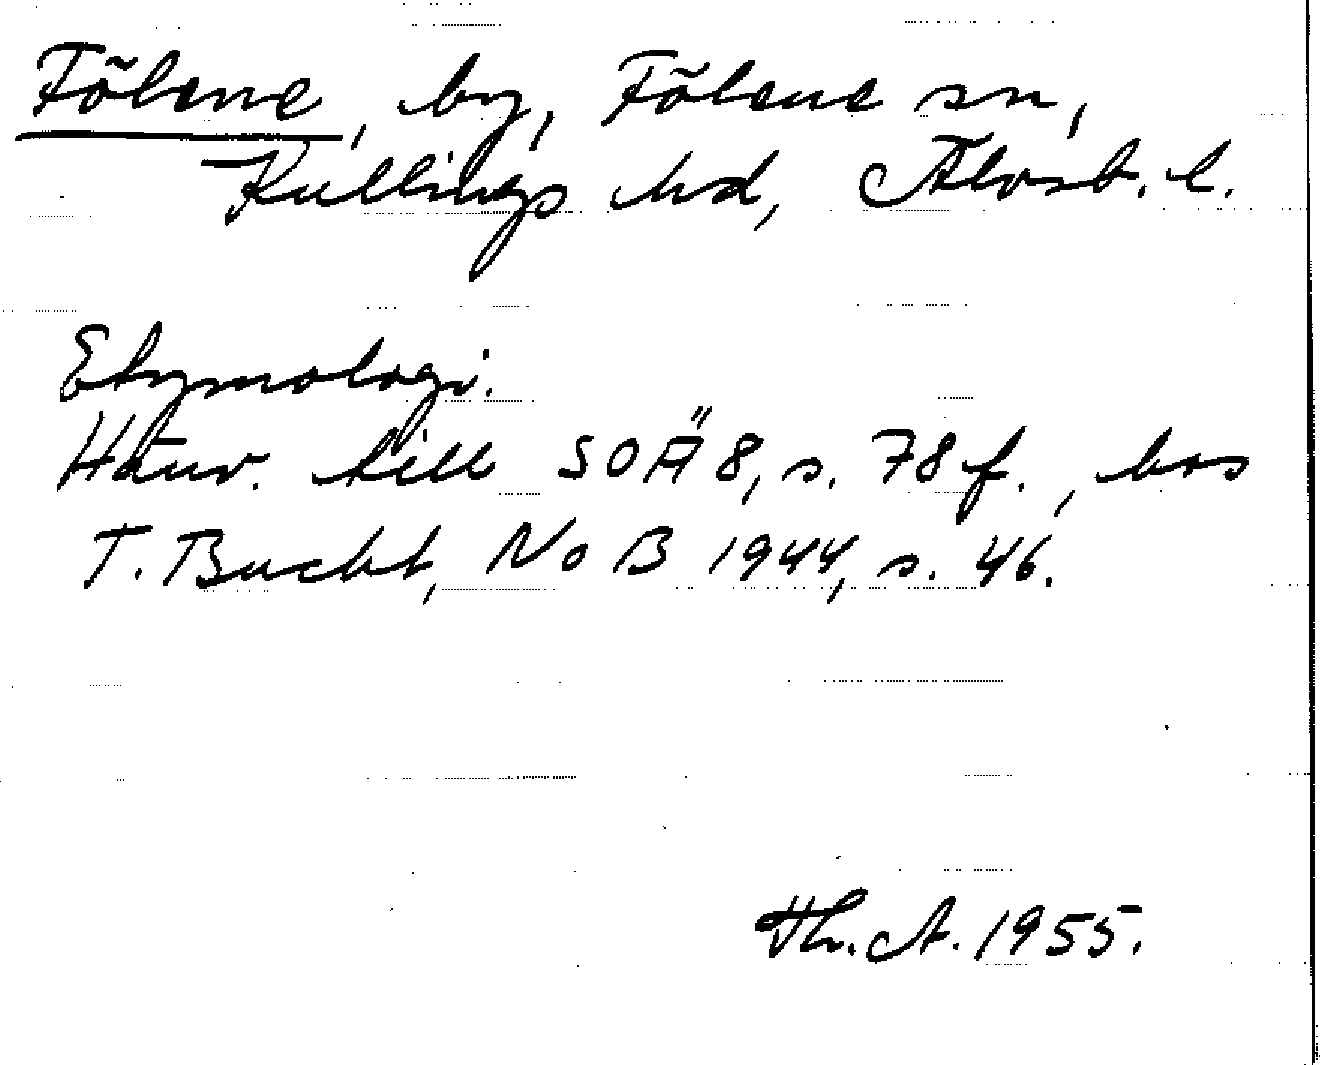 Fölene, by, Fölene sn,
Kullings hd, Älvsb. l.
Etymologi.
Hänv. till SOÄ 8, s. 78 f., hos
T. Bucht, NoB 1944, s. 46.
Th. A. 1955.